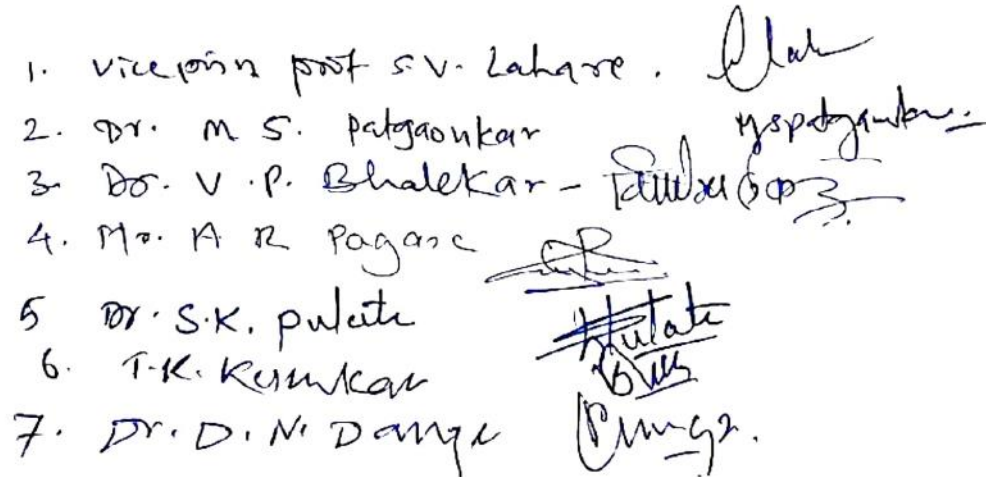 1. Viceprin prof S.V. Lahare.
2. Dr. M S. Patgaonkar mspatgaonkar.
3. Dr. V.P. Bhalekar -
4. Mr. A R Pagare
5 Dr. S.K. Pulate SKPulate
6. T.K. Kurunkar
7. Dr. D. N. Dange